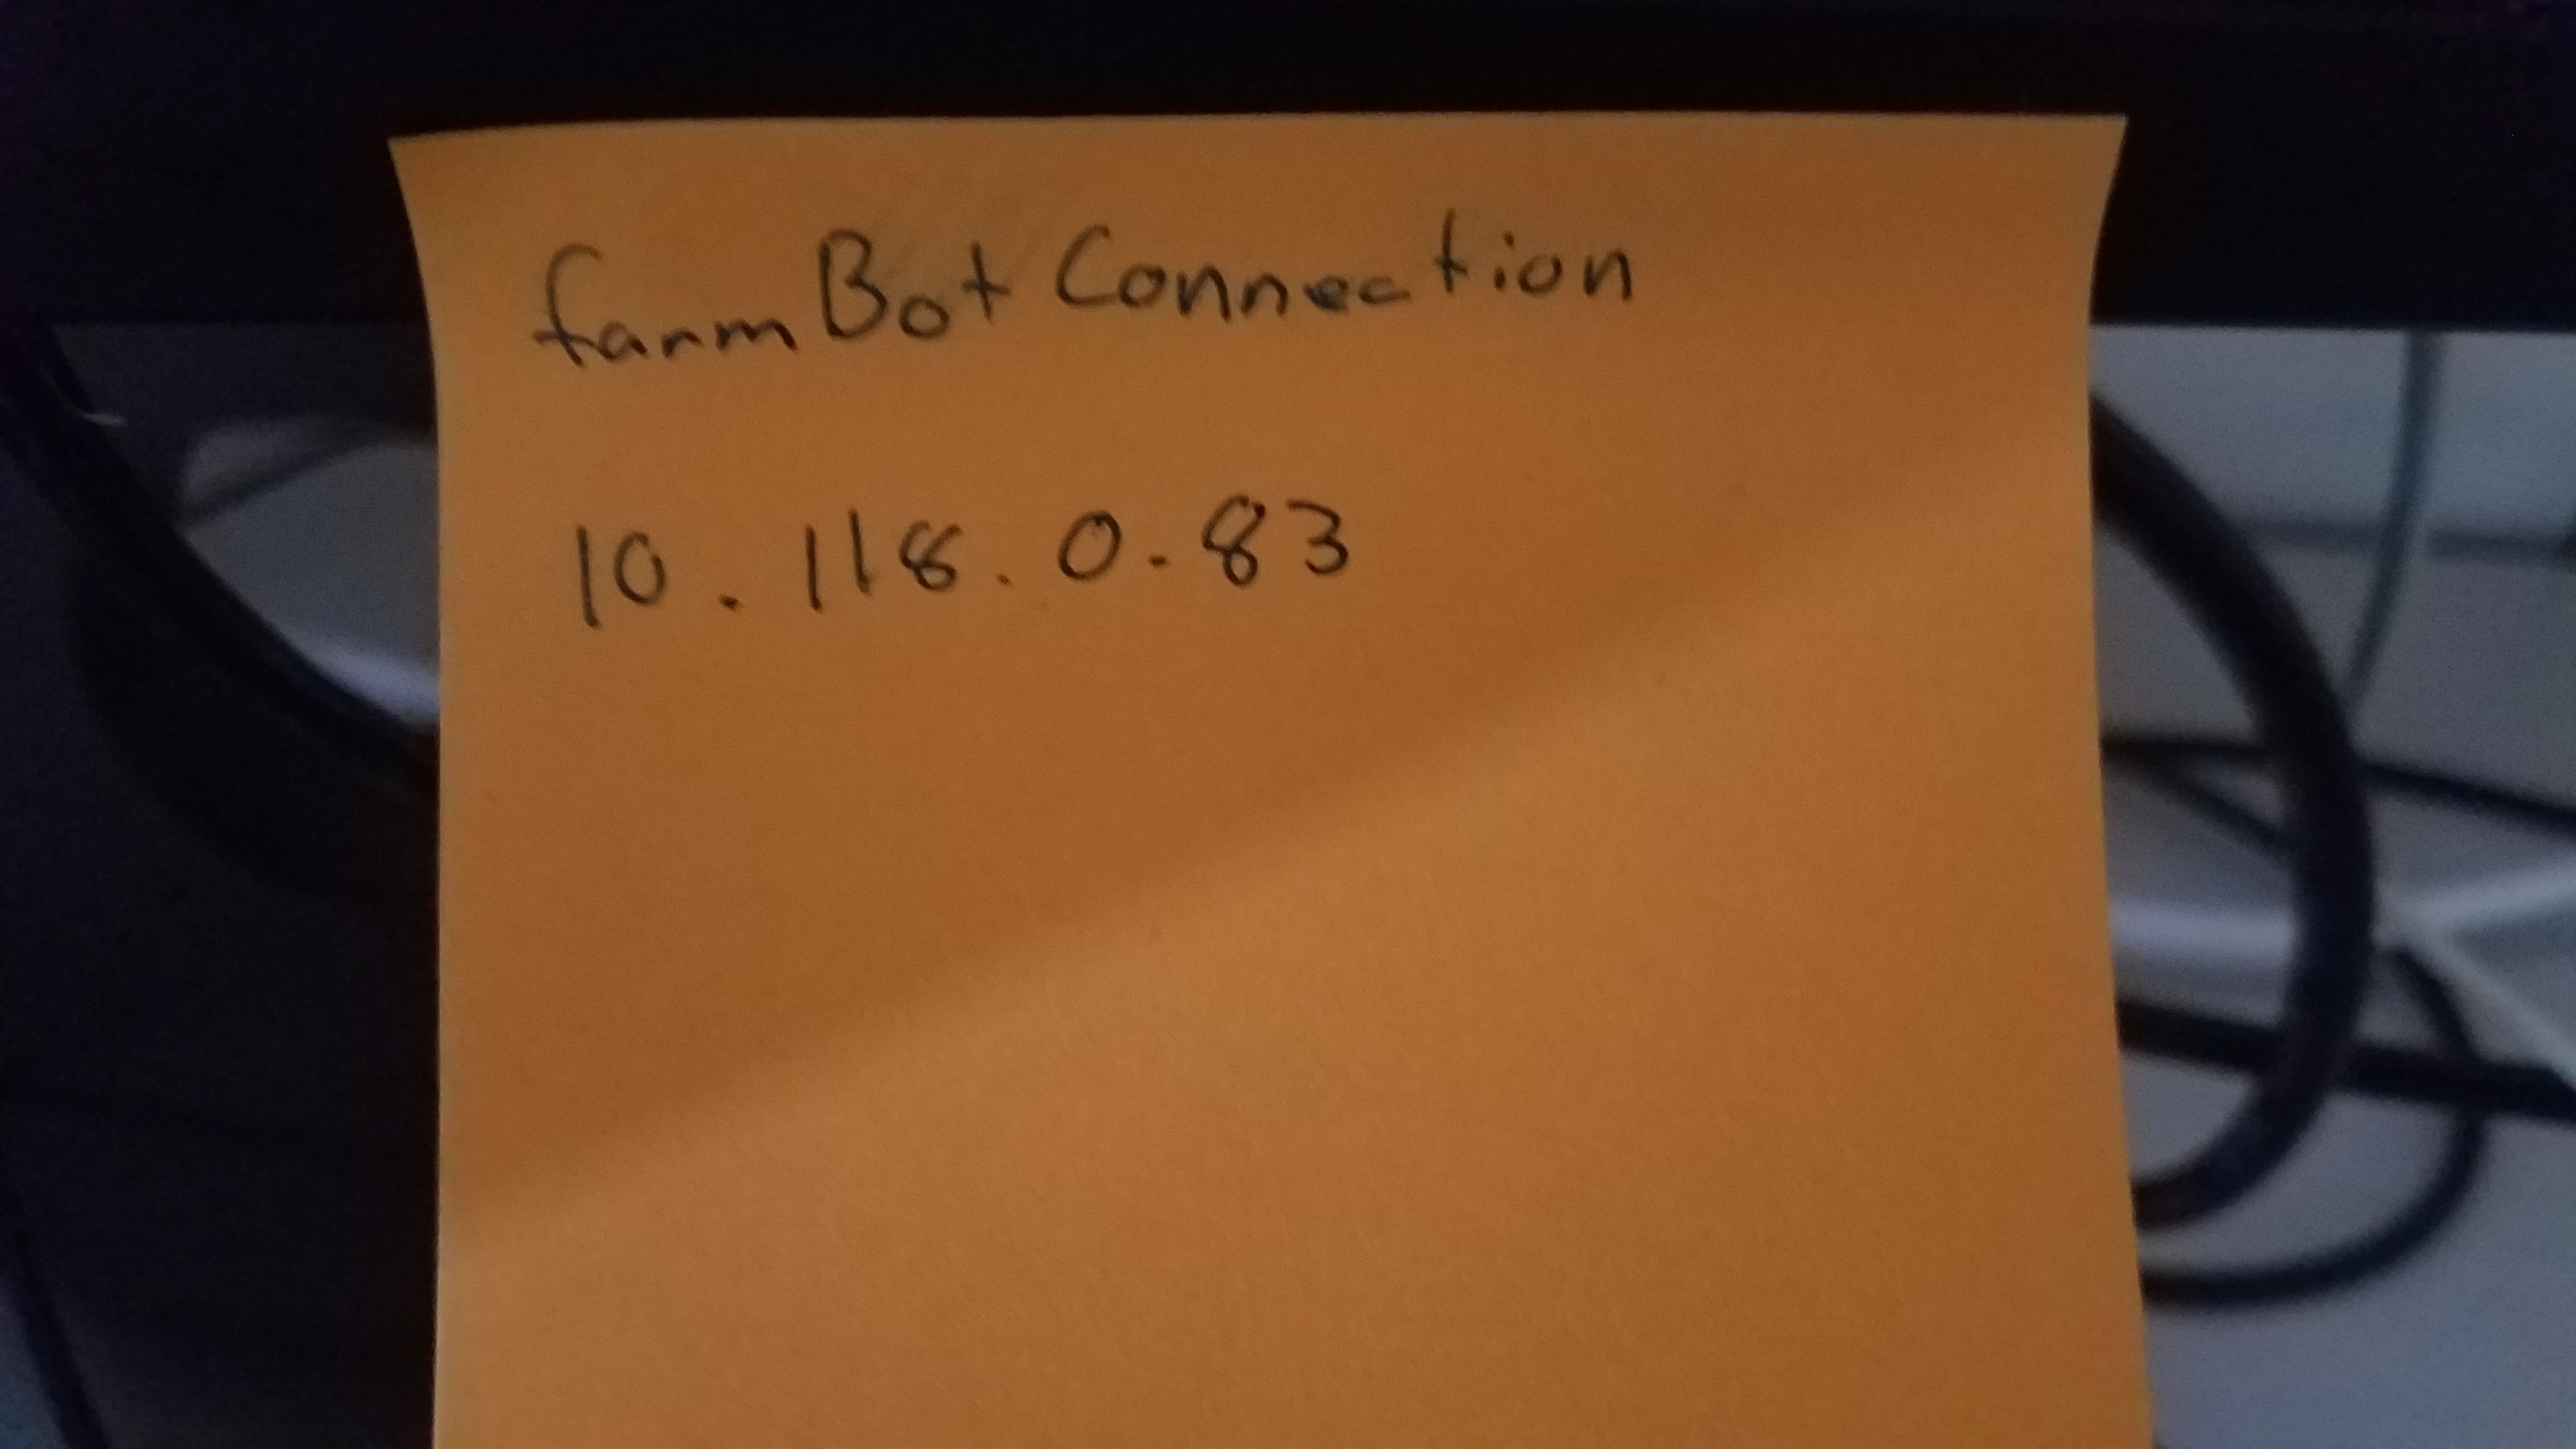 farmBot Connection
10.118.0.83